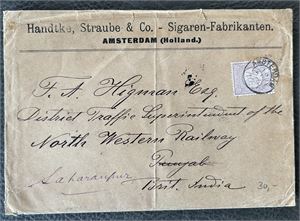 Handtke, Straube & Co. - Sigaren-Fabrikanten.
AMSTERDAM (Holland.)
AMSTERDAM
F. A. Higman Esq.
District Traffic Superintendent of the
North Western Railway
Punjab
Saharanpur
Brit. India
30,-